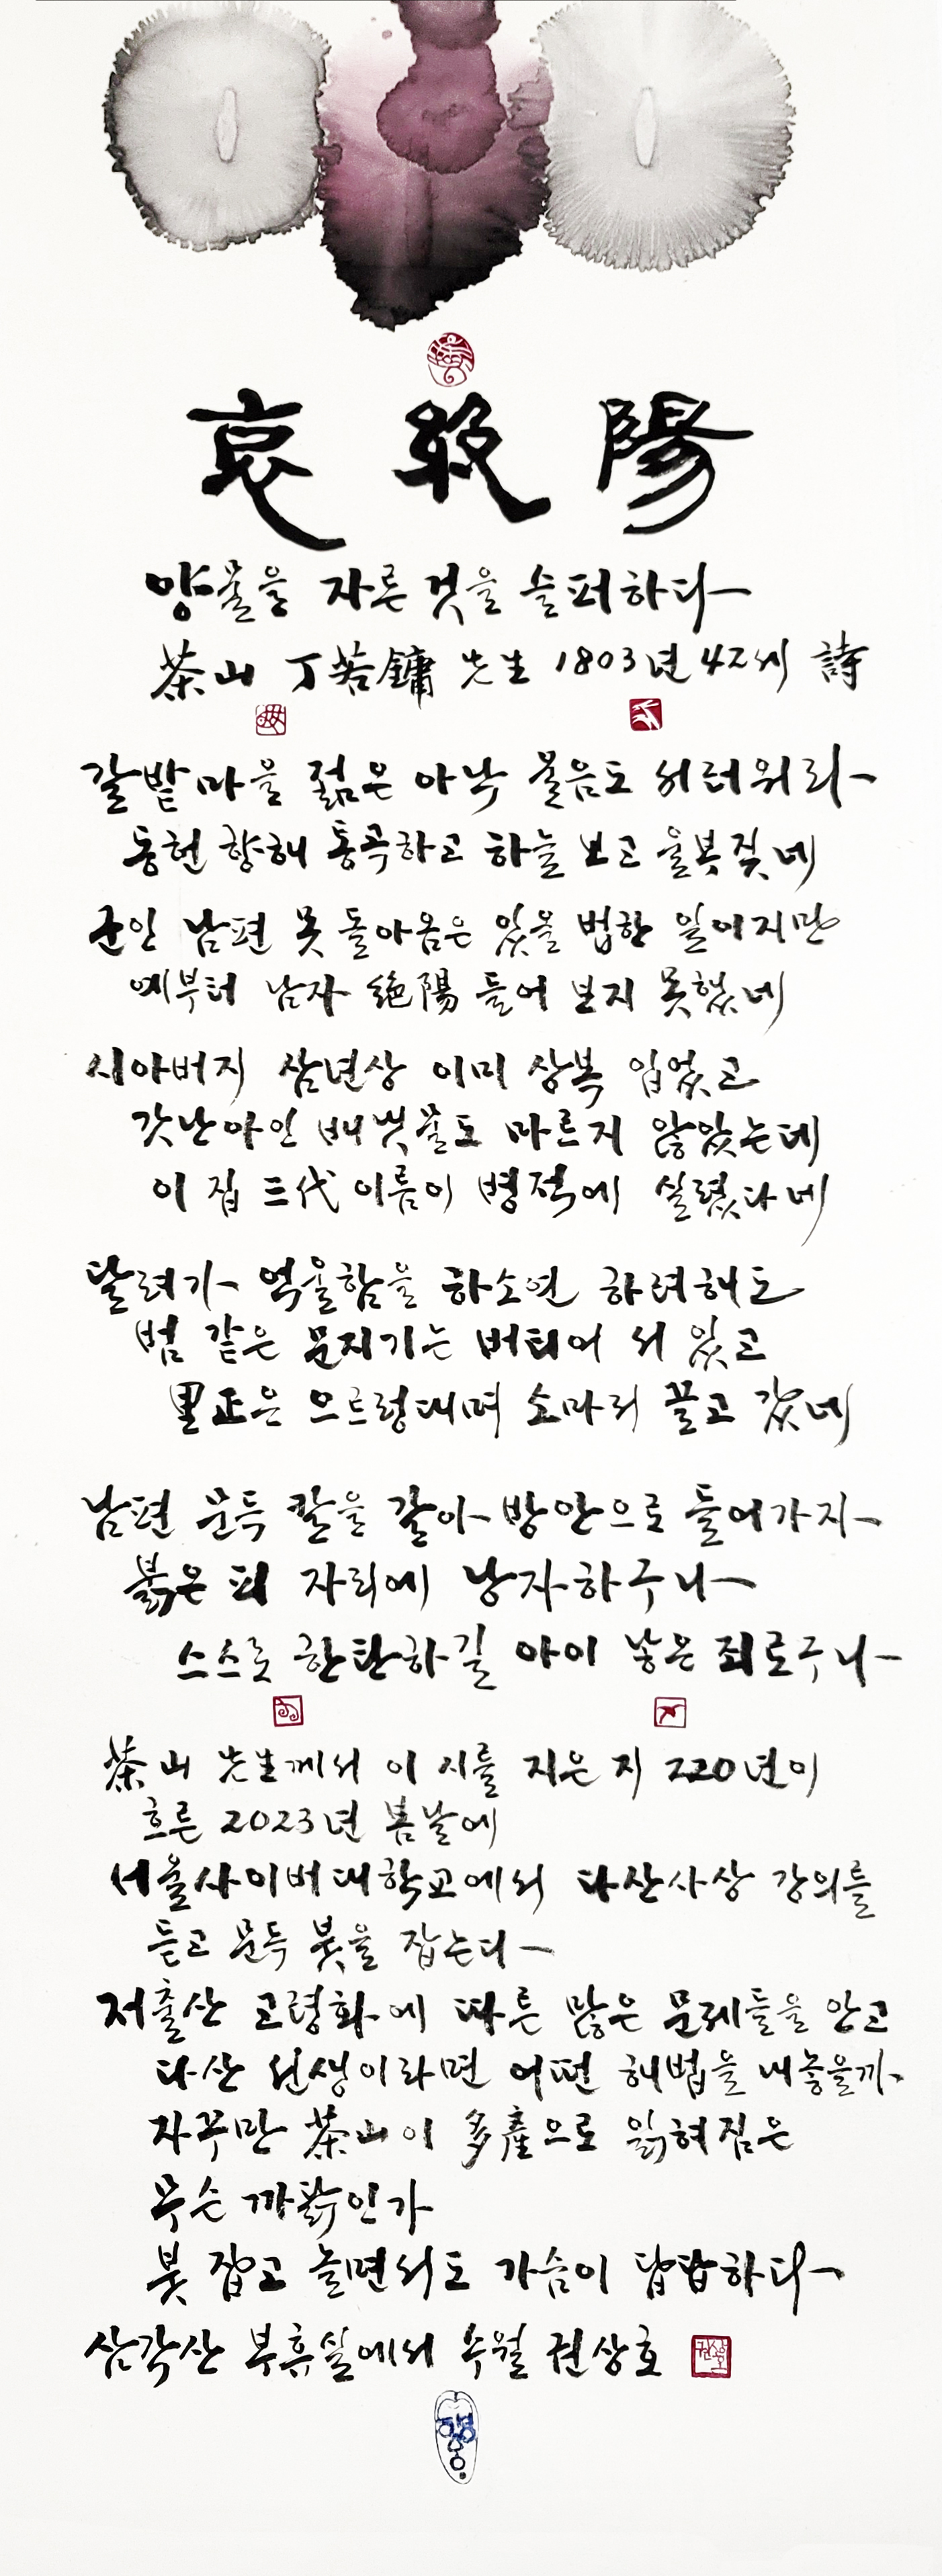 哀絶陽
양물을 자른 것을 슬퍼하다
茶山 丁若鏞 先生 1803년 42세 詩
갈밭마을 젊은 아낙 울음도 서러워라
동헌 향해 통곡하고 하늘 보고 울부짖네
군인 남편 못 돌아옴은 있을 법한 일이지만
예부터 남자 絶陽 들어 보지 못했네
시아버지 삼년상 이미 상복 입었고
갓난아인 배냇물도 마르지 않았는데
이 집 三代 이름이 병적에 실렸다네
달려가 억울함을 하소연 하려해도
범 같은 문지기는 버티어 서 있고
里正은 으르렁대며 소마저 끌고 갔네
남편 문득 칼을 갈아 방안으로 들어가자
붉은 피 자리에 낭자하구나
스스로 한탄하길 아이 낳은 죄로구나
茶山 先生께서 이 시를 지은 지 220년이
흐른 2023년 봄날에
서울사이버대학교에서 다산사상 강의를
듣고 문득 붓을 잡는다
저출산 고령화에 따른 많은 문제들을 안고
다산 선생이라면 어떤 해법을 내놓을까
자꾸만 茶山이 多産으로 읽혀짐은
무슨 까닭인가
붓 잡고 놀면서도 가슴이 답답하다
삼각산 부휴실에서 수월 권상호
권상호